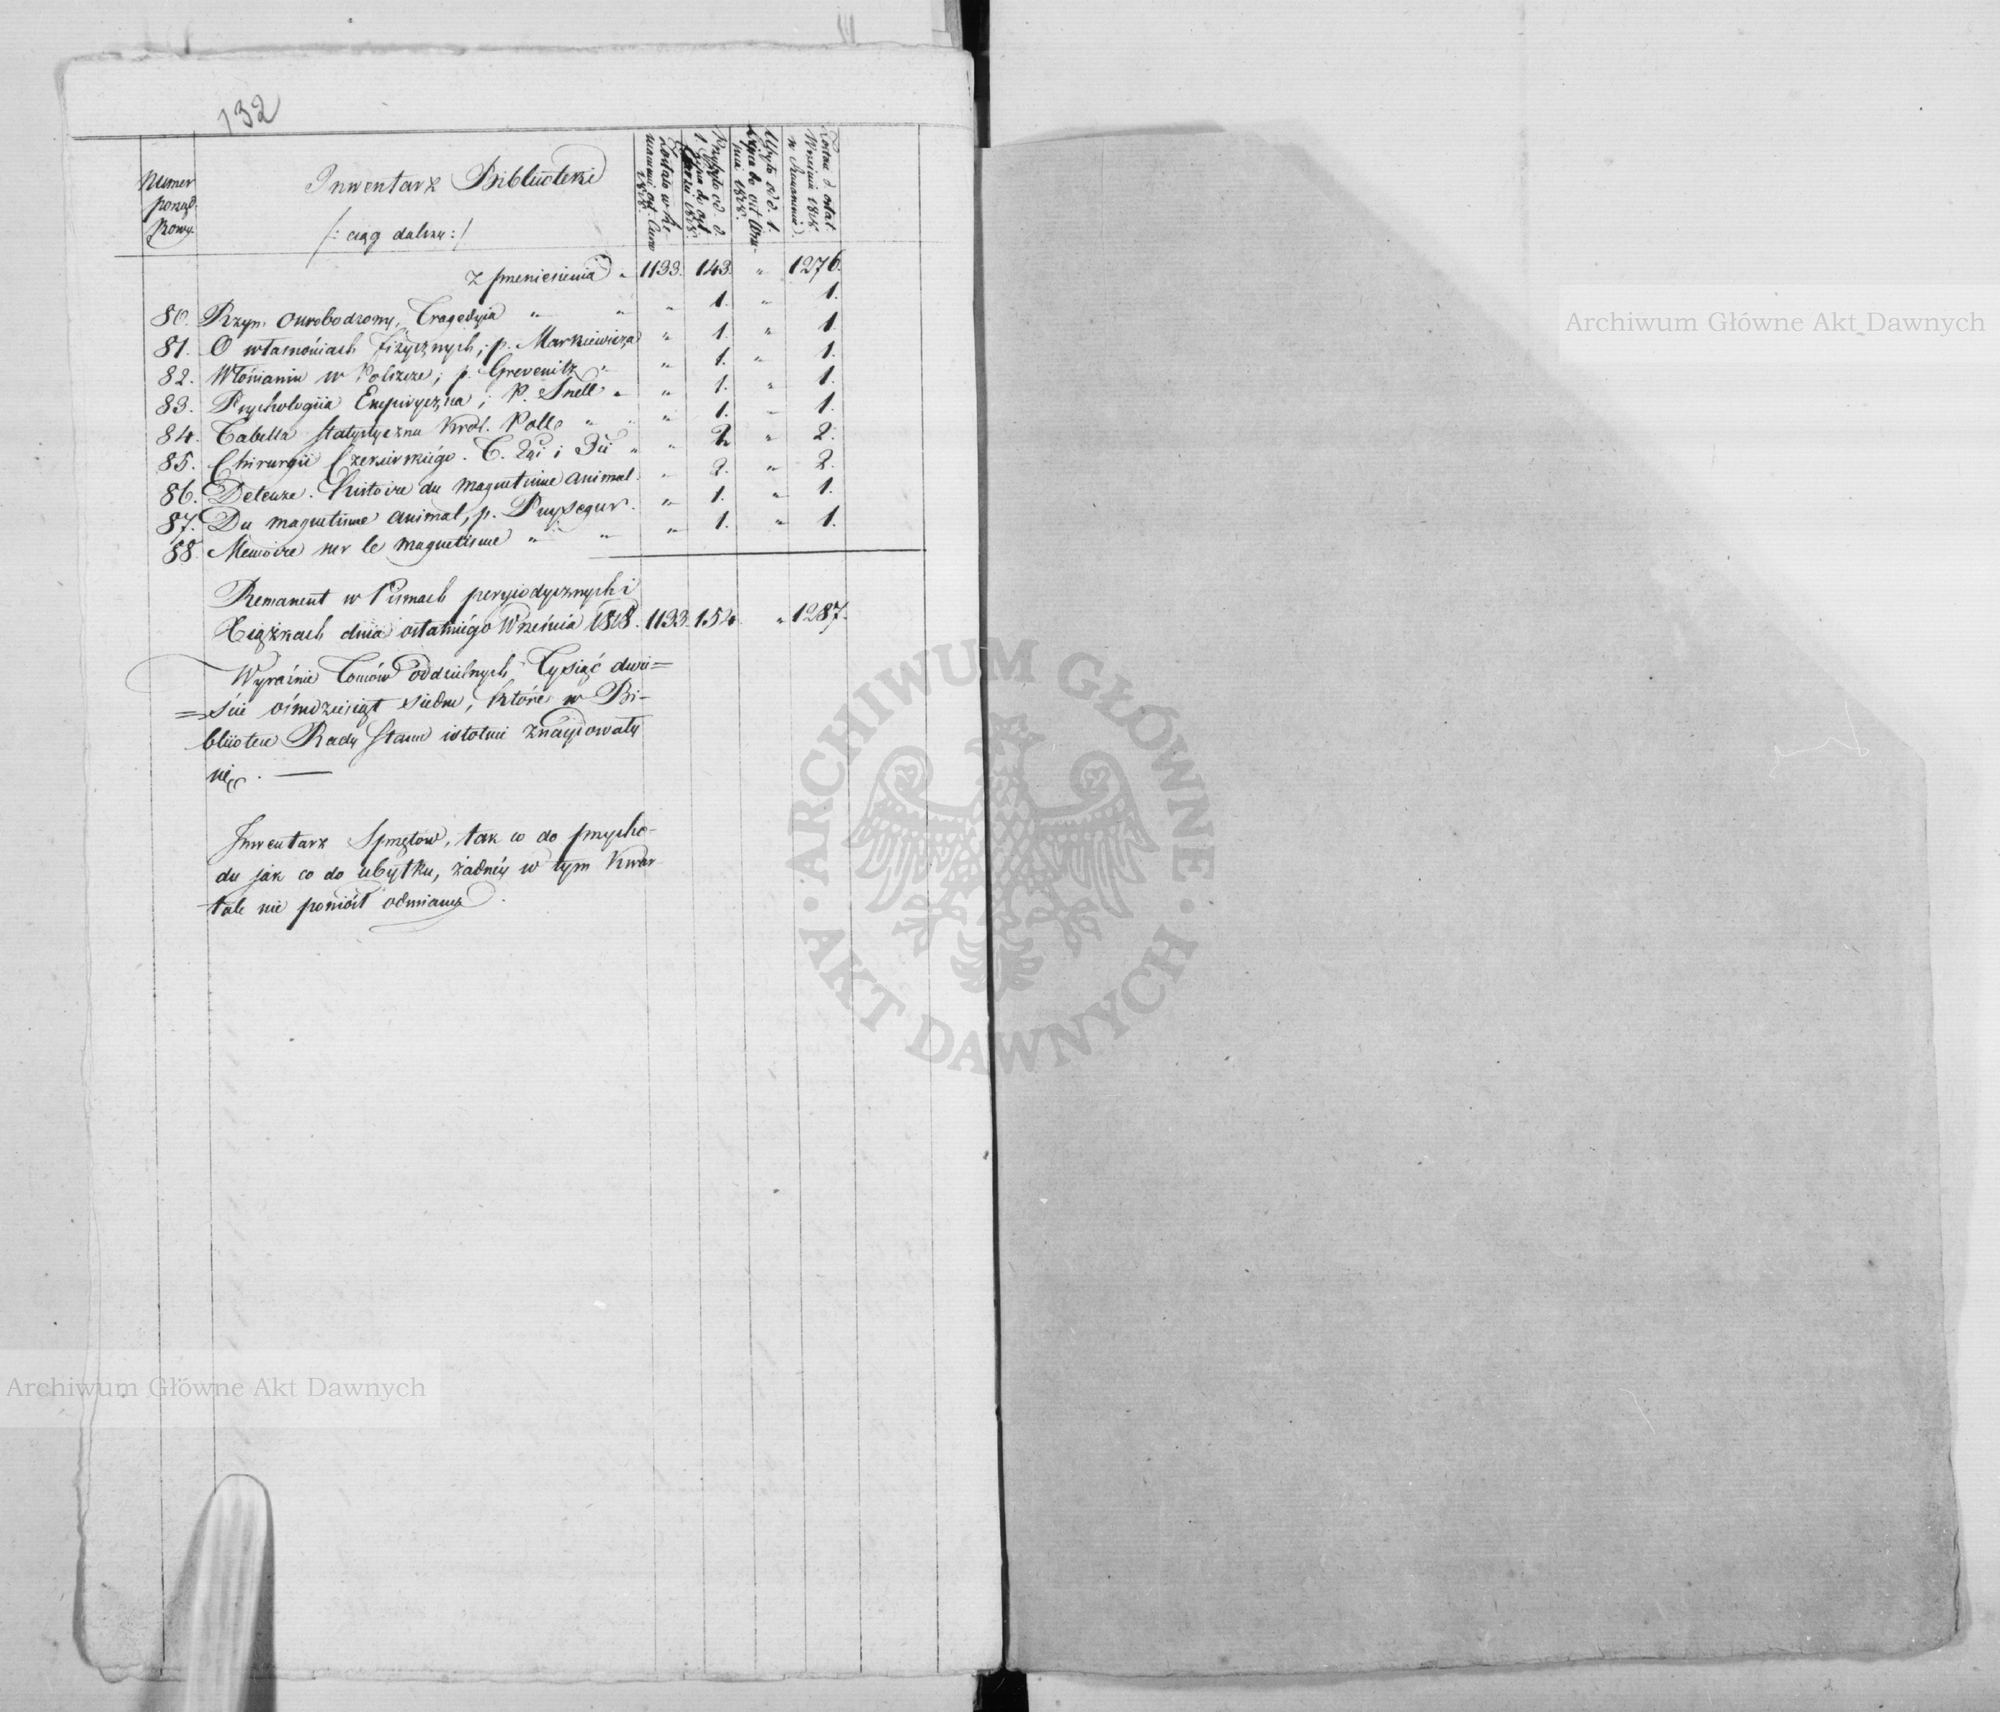 132
Numer
porząd
kowy.
Inwentarz Biblioteki
/: ciąg dalszy :/
Zostało w Re-
manencie ost. Czerw
1818.
Przybyło od d.
1 Lipca do ost
1818.
Ubyło od d. 1.
Lipca do ost Wrze-
śnia 1818.
Zostaie d. ostat.
Września 1818
w Remanencie
z przeniesienia „ 1133. 143. „ 1276.
80. Rzym oswobodzony, Tragedyia „ „ „ 1. „ 1.
81. O własnościach fizycznych; p. Markiewicza „ 1. „ 1.
82. Włościanin w Polszcze; p. Grevenitz „ „ 1. „ 1.
83. Psychologiia Empiryczna; p. Snell „ „ 1. „ 1.
84. Tabella statystyczna Król. Pols „ „ 1. „ 1.
85. Chirurgii Czekierskiégo. T. 2gi i 3ci „ „ 2. „ 2.
86. Deleuze. Histoire du magnetisme animal. „ 2. „ 2.
87. Du magnetisme animal, p. Puysegur. „ 1. „ 1.
88. Mémoire sur le magnetisme „ „ „ 1. „ 1.
Remanent w Pismach peryiodycznych i
Xiążkach dnia ostatniégo Września 1818. 1133. 154. „ 1287.
Wyraźnie Tomów oddzielnych, Tysiąć dwie=
=ście ośmdziesiąt siedm, które w Bi-
bliotece Rady Stanu istotnie znayiowały
się. —
Inwentarz Sprzętów, tak co do przycho-
du jak co do ubytku, żadnéy w tym Kwar-
tale nie poniósł odmiany.
Archiwum Główne Akt Dawnych
ARCHIWUM GŁÓWNE · AKT DAWNYCH ·
Archiwum Główne Akt Dawnych